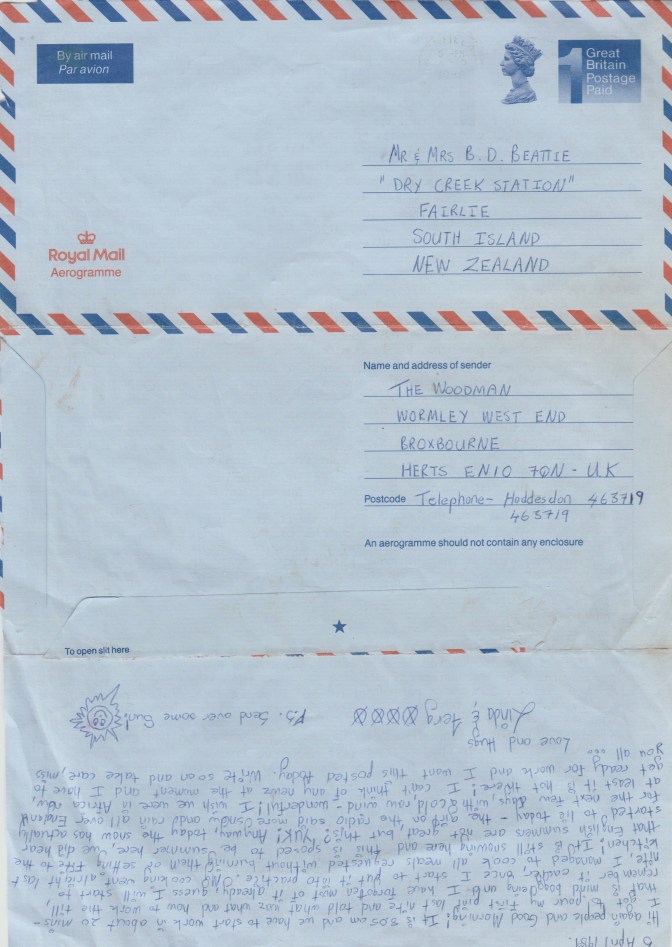 By air mail
Par avion
1 Great
Britain
Postage
Paid
MR & MRS B. D. BEATTIE
"DRY CREEK STATION"
FAIRLIE
SOUTH ISLAND
NEW ZEALAND
Royal Mail
Aerogramme
Name and address of sender
THE WOODMAN
WORMLEY WEST END
BROXBOURNE
HERTS EN10 7QN - UK
Postcode Telephone - Hoddesdon 463719
463719
An aerogramme should not contain any enclosure
To open slit here
5 April 1989.
Hi again people and Good Morning! It is 8.05 am and we have to start work in about 20 mins -
I got to pour my first pint last nite and told what waz what and how to work the till,
that is mind boggling and I have forgotten most of it already, guess I will start to
remember it easier, once I start to put it into practice. cooking went alright last
nite, I managed to cook all meals requested without burning them or setting fire to the
kitchen! It is still snowing here and this is sposed to be Summer here, did hear
that English summers are not great, but this? YUK! Anyway, today the snow has actually
started to lie today - the girl on the radio said more snow and rain all over England
for the next few days, with a cold, raw wind - wonderful! I wish we were in Africa now,
at least it is hot there! I can't think of any newz at the moment and I have to
get ready for work and I want this posted today. Write soon and take care, miss
you all ...
Love and Hugs
Linda & Ferg
P.S. Send over some Sun!